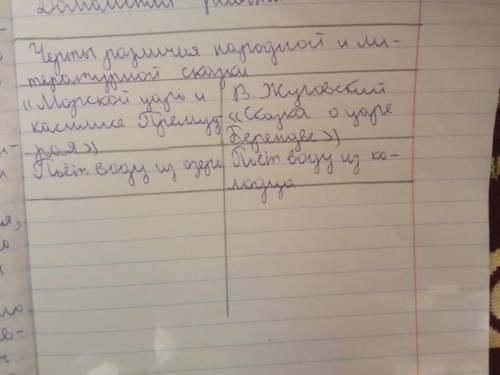 Домашняя работа
Черты различия народной и ли-
тературной сказки
«Морской царь и
василиса Премуд
рая»
В. Жуковский
«Сказка о царе
Берендее»
Пьёт воду из озера
Пьёт воду из ко-
лодца